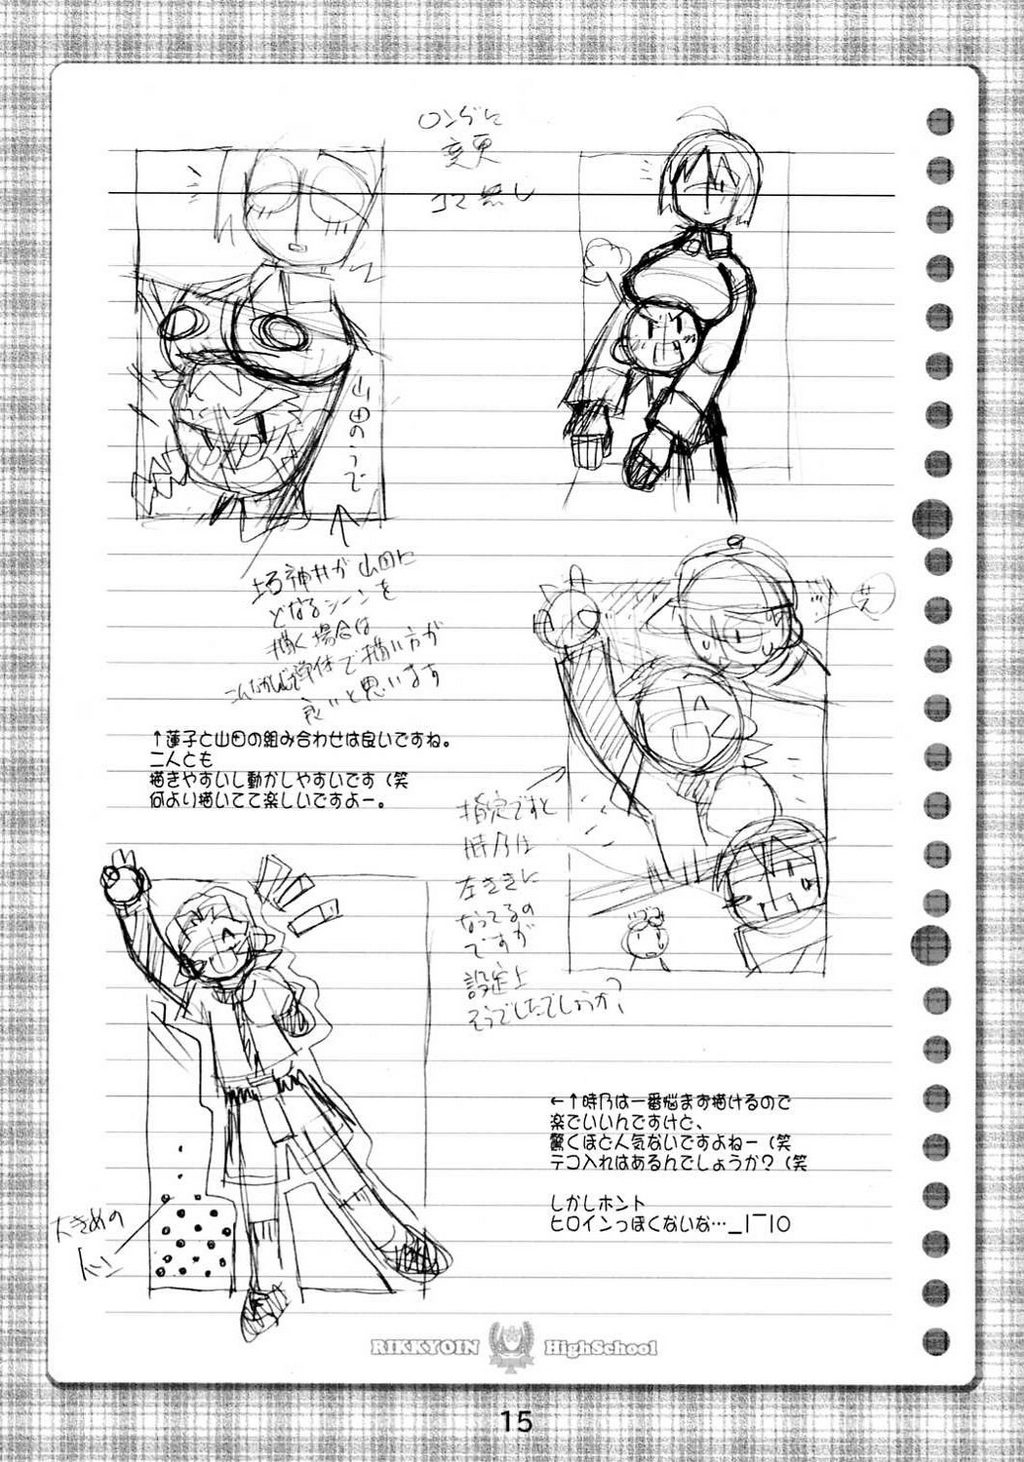 ロングに
変更
コマ無し
山田のうで
堵神井が山田に
どなるシーンを
描く場合は
描い方が
良いと思います
↑蓮子と山田の組み合わせは良いですね。
二人とも
描きやすいし動かしやすいです(笑
何より描いてて楽しいですよー。
指定ですと
時乃は
左ききに
なってるの
ですが
設定上
そうでしたでしょうか?
←↑時乃は一番悩まず描けるので
楽でいいんですけど、
驚くほど人気ないですよねー(笑
テコ入れはあるんでしょうか?(笑
しかしホント
ヒロインっぽくないな…_| ̄|○
大きめの
トーン
RIKKYOIN HighSchool
15